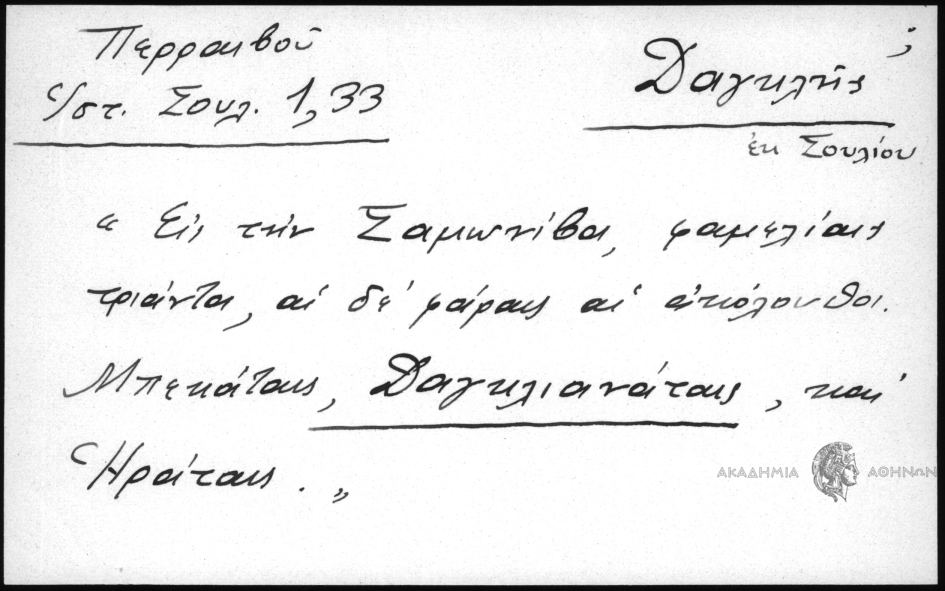 Περραιβοῦ
Ἱστ. Σουλ. 1,33
Δαγκλῆς
ἐκ Σουλίου
" Εἰς τὴν Σαμωνίβα, φαμελίαις
τριάντα, αἱ δέ φάραις αἱ ἀκόλουθοι.
Μπεκάταις, Δαγκλιανάταις, καί
Ἡράταις. "
ΑΚΑΔΗΜΙΑ ΑΘΗΝΩΝ